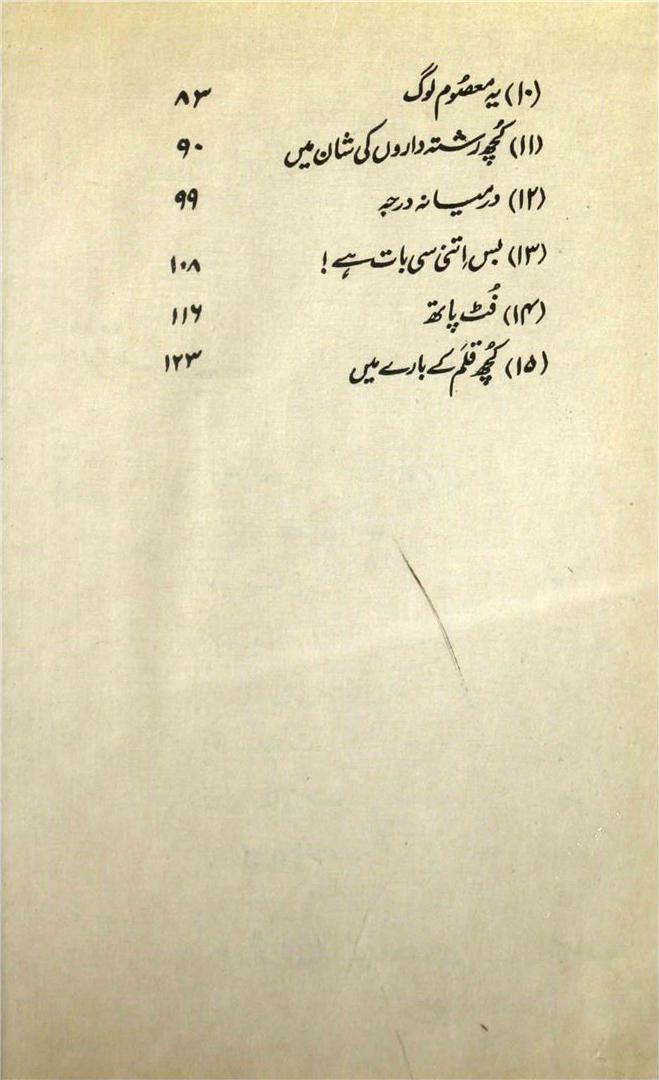 (۱۰) یہ معصُوم لوگ ۸۳
(۱۱) کُچھ رشتہ داروں کی شان میں ۹۰
(۱۲) درمیانہ درجہ ۹۹
(۱۳) بس اِتنی سی بات ہے ! ۱۰۸
(۱۴) فُٹ پاتھ ۱۱۶
(۱۵) کُچھ قلَم کے بارے میں ۱۲۳